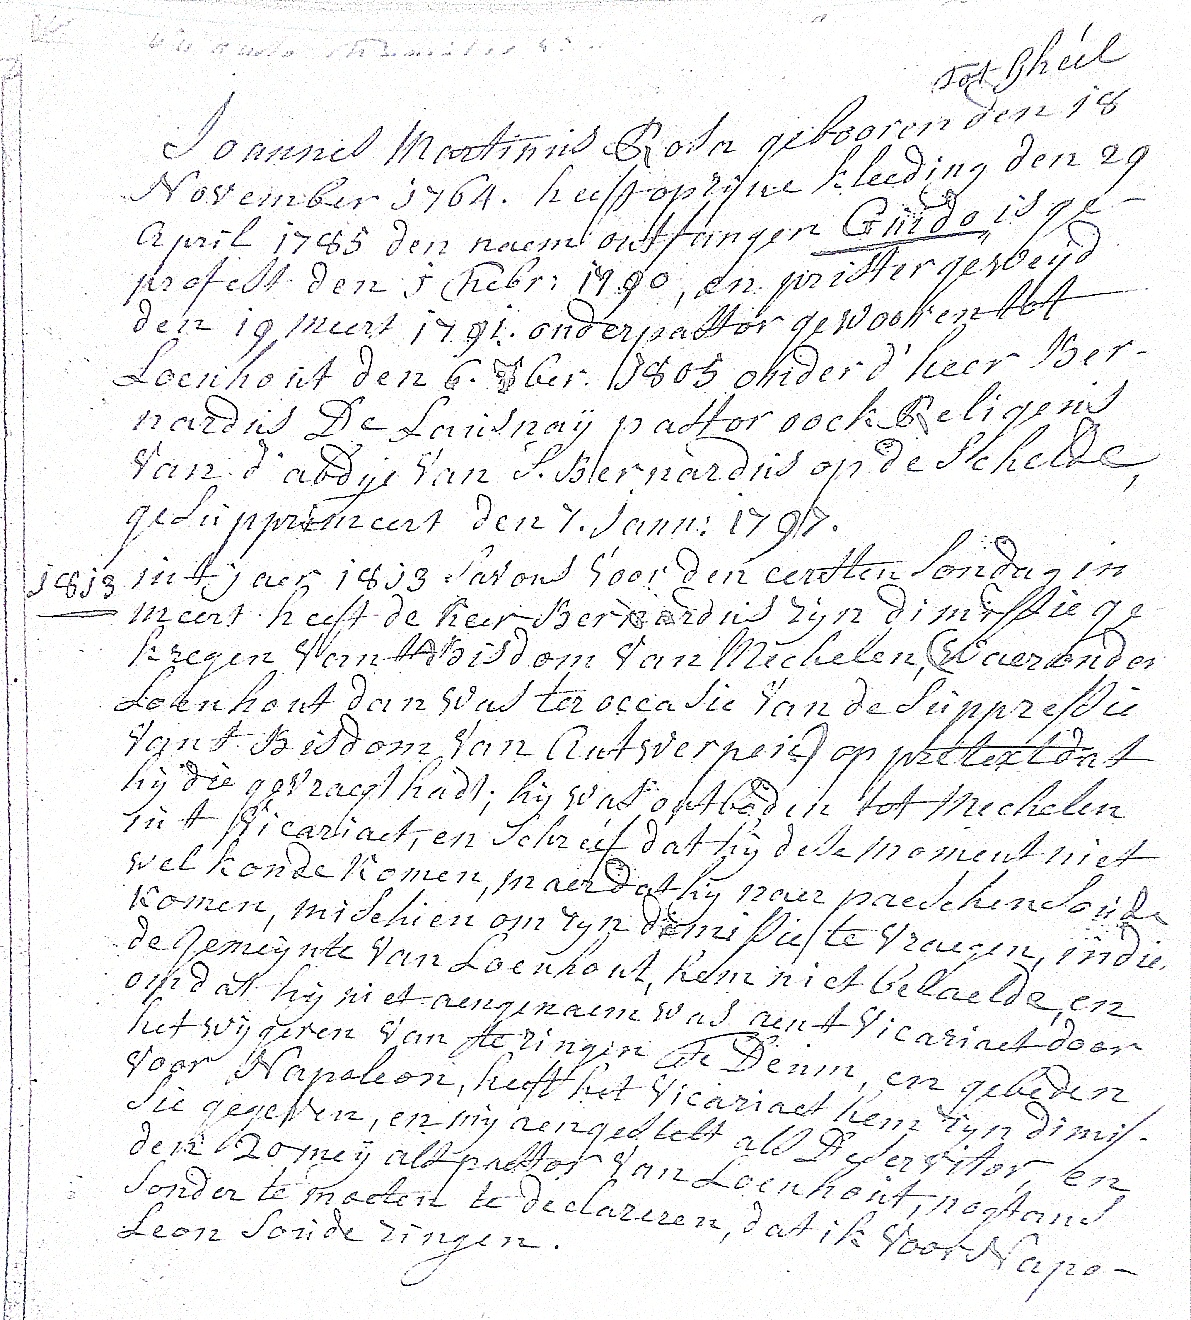 tot Gheel
Joannes Martinus Rosa gebooren den 18
November 1764. heeft op zijne kleeding den 29
April 1785 den naem ontfangen Guido, is ge-
profest den 5 Febr: 1790, en prister geweijd
den 19 Meert 1791. onderpastor gewooren tot
Loenhout den 6. 7ber. 1805 onder d'heer Ber-
nardus De Launaÿ pastor oock Religeus
van d'abdije van S. Bernardus op de Schelde,
gesupprimeert den 7. Janu: 1797.
1813 int jaer 1813 savons voor den eersten sondag in
meert heeft de heer Bernardus zijn dimissie ge
kregen van Bisdom van Mechelen, (waer onder
Loenhout dan was ter occasie van de suppressie
vant Bisdom van Antwerpen) op pretext dat
hij die gevraegt hadt; hij was ontboden tot Mechelen
int Vicariaet, en schreef dat hij dese moment niet
wel konde komen, maer dat hij naer paeschen soude
komen, mischien om zijn dimissie te vraegen, indie
de gemeijnte van Loenhout, hem niet belaelde, en
omdat hij niet aengenaem was aent Vicariaet door
het wijgeren van te zingen Te Deum, en gebeden
voor Napoleon, heeft het Vicariaet hem zijn dimis-
sie gegeven, en mij aengestelt als Deservitor, en
den 20 meij als pastor van Loenhout, nogtans
sonder te moeten te declareren, dat ik voor Napo-
leon soude zingen.